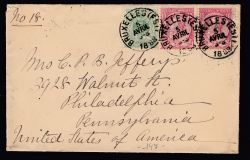 No 18.
BRUXELLES (EST)
5
AVRIL
18
BRUXELLES (EST)
5
AVRIL
18
Mrs C. P. B. Jefferys.
2928 Walnut St.
Philadelphia
Pennsylvania
United States of America